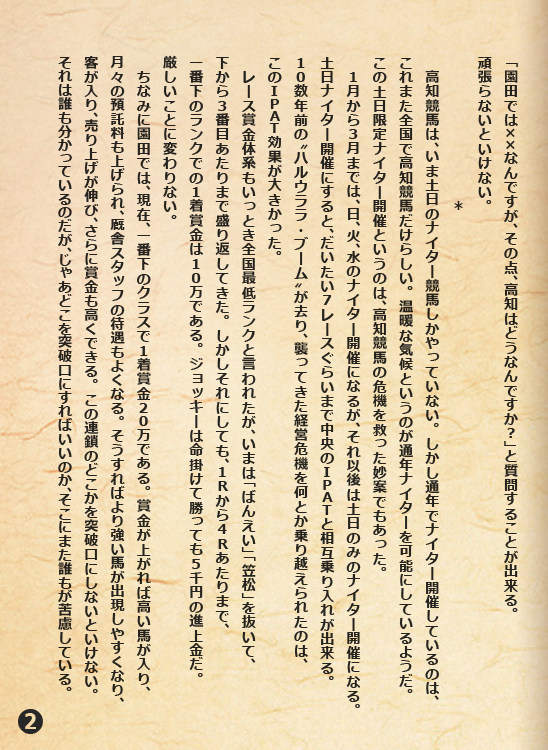 「園田では××なんですが、その点、高知はどうなんですか?」と質問することが出来る。
頑張らないといけない。
＊
高知競馬は、いま土日のナイター競馬しかやっていない。しかし通年でナイター開催しているのは、
これまた全国で高知競馬だけらしい。温暖な気候というのが通年ナイターを可能にしているようだ。
この土日限定ナイター開催というのは、高知競馬の危機を救った妙案でもあった。
1月から3月までは、日、火、水のナイター開催になるが、それ以後は土日のみのナイター開催になる。
土日ナイター開催にすると、だいたい7レースぐらいまで中央のIPATと相互乗り入れが出来る。
10数年前の〝ハルウララ・ブーム〟が去り、襲ってきた経営危機を何とか乗り越えられたのは、
このIPAT効果が大きかった。
レース賞金体系もいっとき全国最低ランクと言われたが、いまは「ばんえい」「笠松」を抜いて、
下から3番目あたりまで盛り返してきた。しかしそれにしても、1Rから4Rあたりまで、
一番下のランクでの1着賞金は10万である。ジョッキーは命掛けて勝っても5千円の進上金だ。
厳しいことに変わりない。
ちなみに園田では、現在、一番下のクラスで1着賞金20万である。賞金が上がれば高い馬が入り、
月々の預託料も上げられ、厩舎スタッフの待遇もよくなる。そうすればより強い馬が出現しやすくなり、
客が入り、売り上げが伸び、さらに賞金も高くできる。この連鎖のどこかを突破口にしないといけない。
それは誰も分かっているのだが、じゃあどこを突破口にすればいいのか、そこにまた誰もが苦慮している。
2